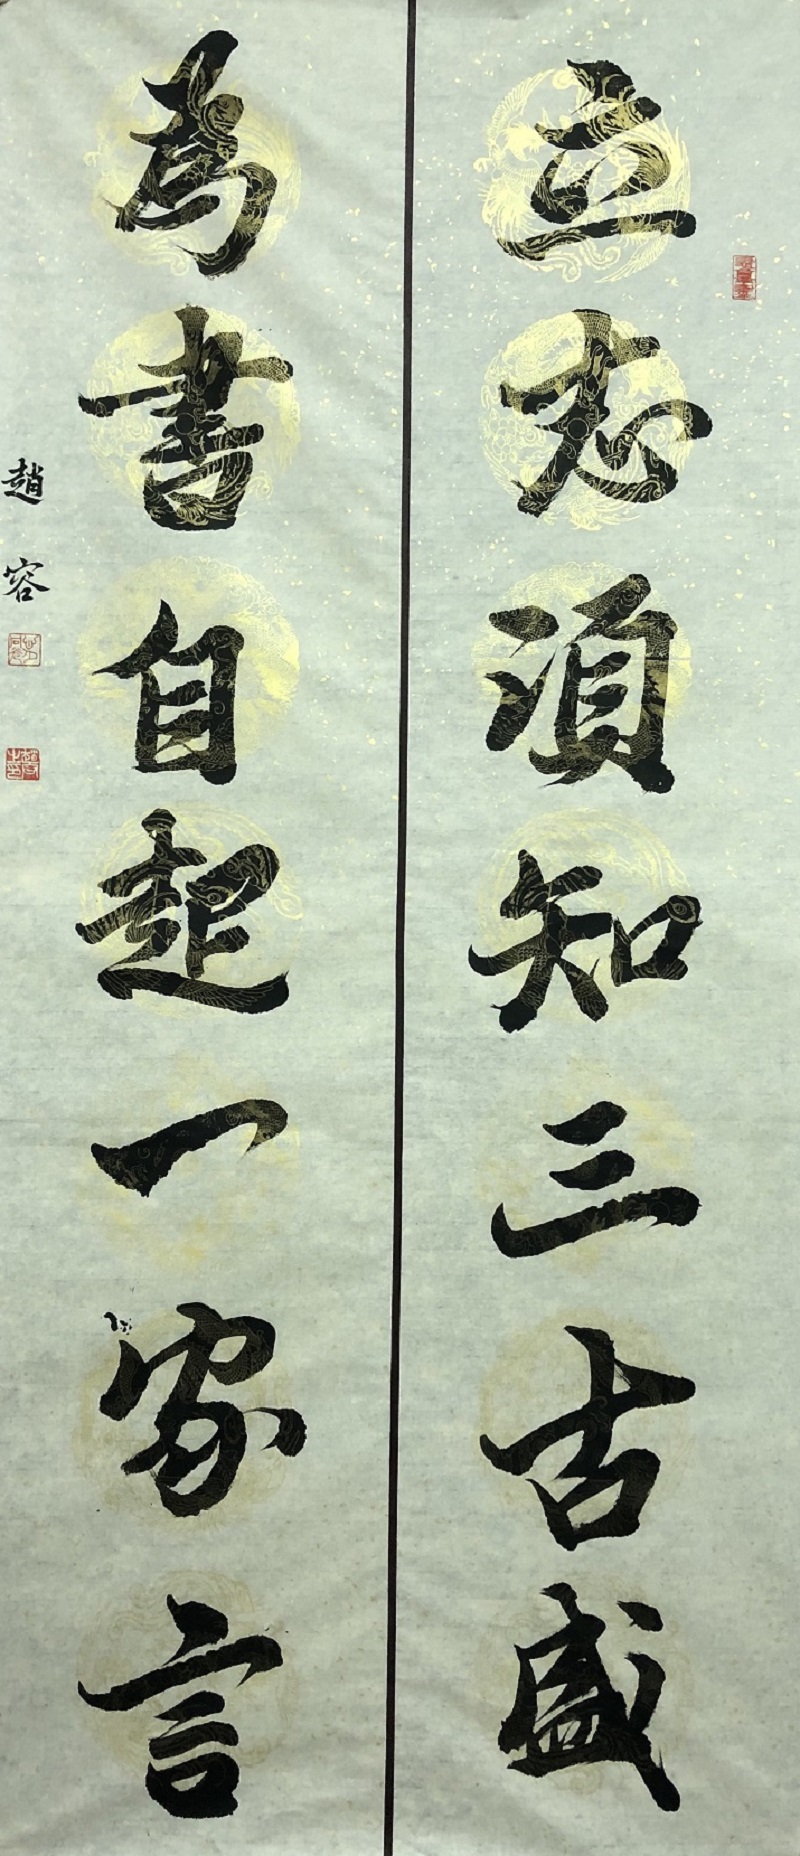 立志須知三古盛
為書自起一家言
趙容